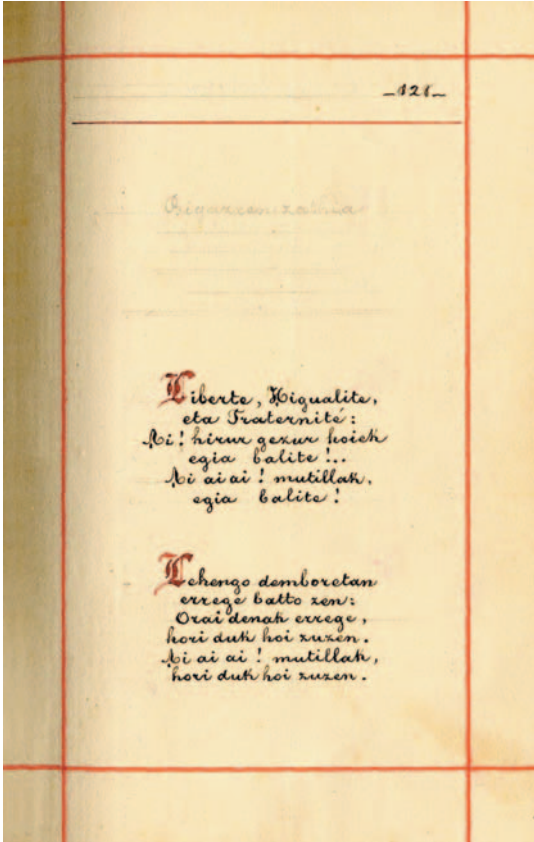 _121_
Bigarren zathia
Liberte, Higualite,
eta Fraternité:
Ai! hirur gezur hoiek
egia balite!..
Ai ai ai! mutillak,
egia balite!
Lehengo demboretan
errege batto zen:
Orai denak errege,
hori duk hoi zuzen.
Ai ai ai! mutillak,
hori duk hoi zuzen.